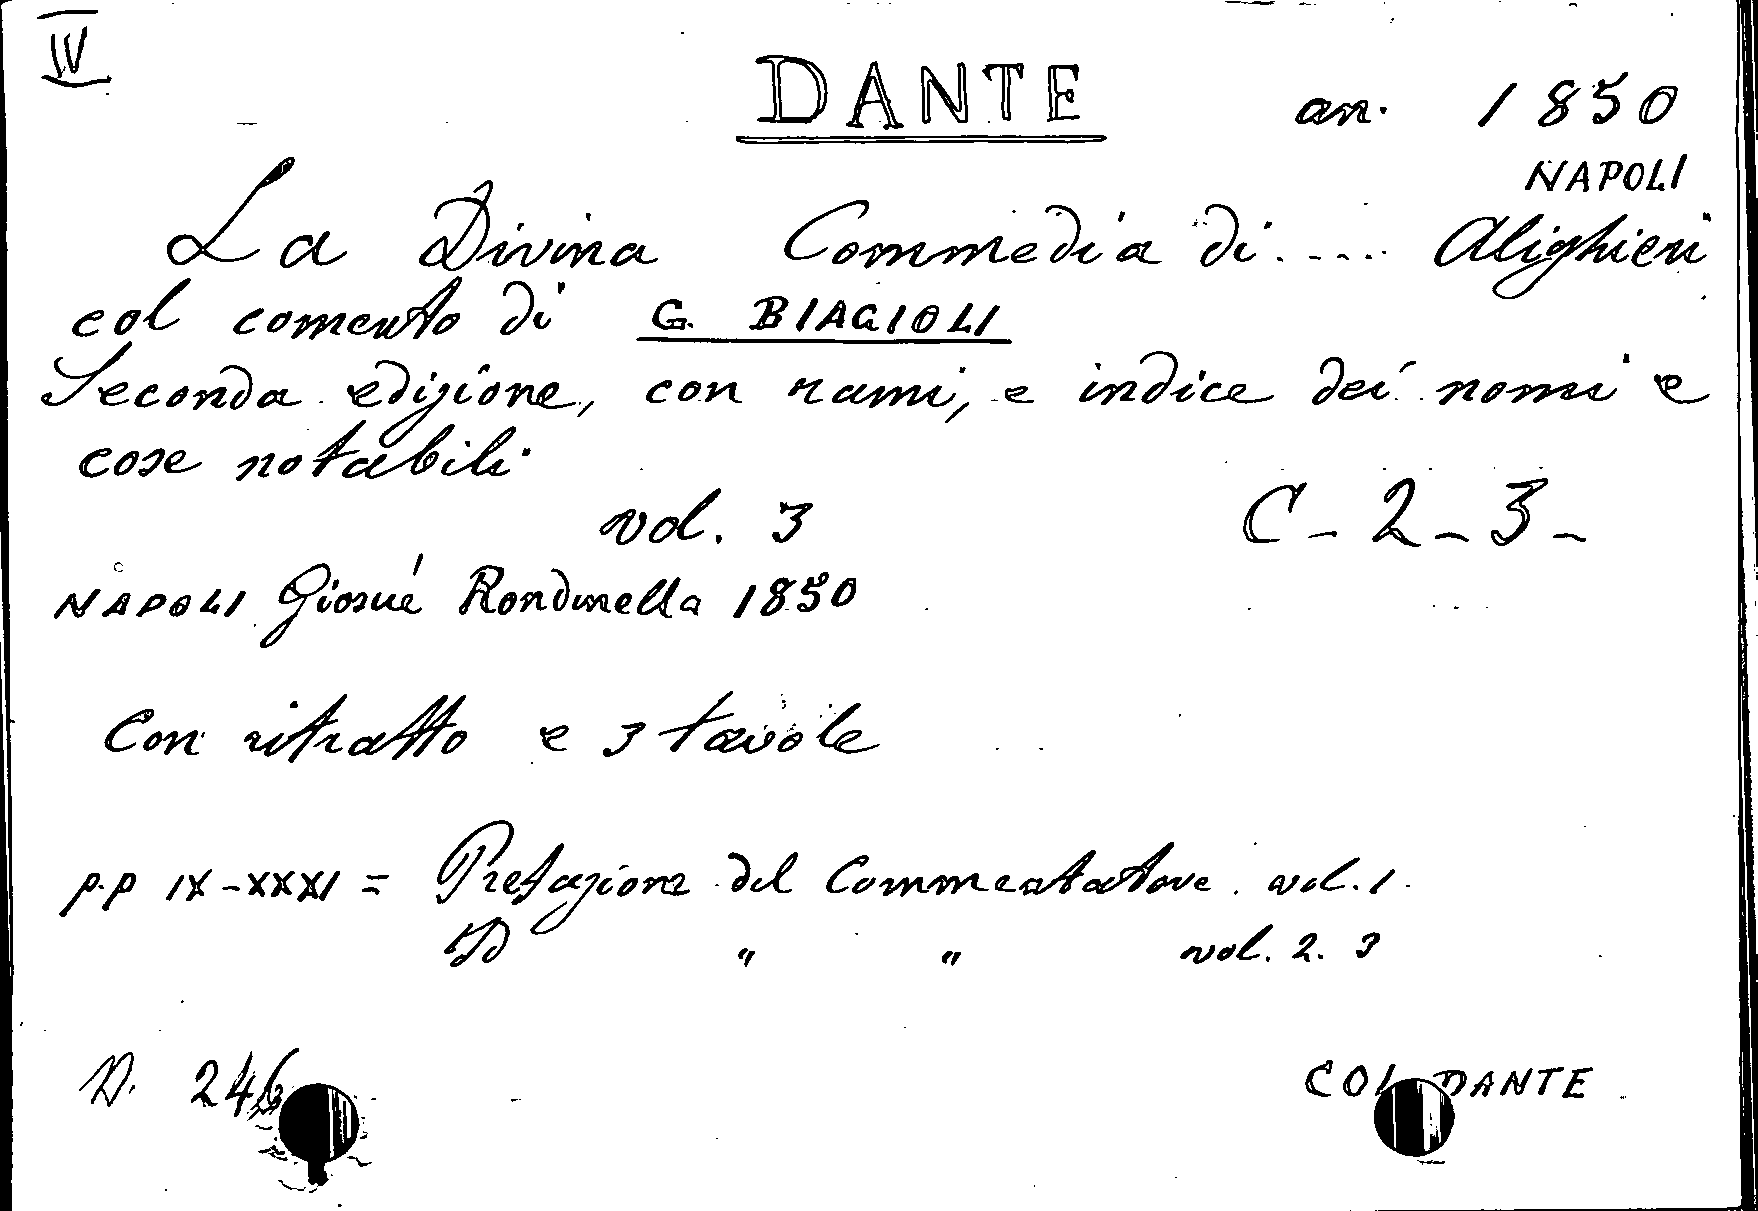 IV
DANTE an. 1850
NAPOLI
La Divina Commedia di..... Alighieri
col comento di G. BIAGIOLI
Seconda edizione, con rami, e indice dei nomi e
cose notabili
vol. 3 C-2-3-
NAPOLI Giosué Rondinella 1850
Con ritratto e 3 tavole
p.p IX-XXXI = Prefazione del Commentatore. vol. 1.
ID " " vol. 2. 3
D. 246
COL DANTE